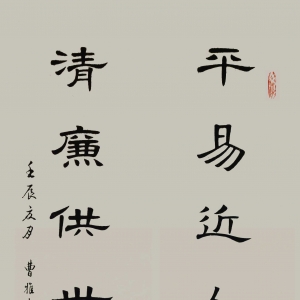 平易近
清廉供世
壬辰夏月 曹